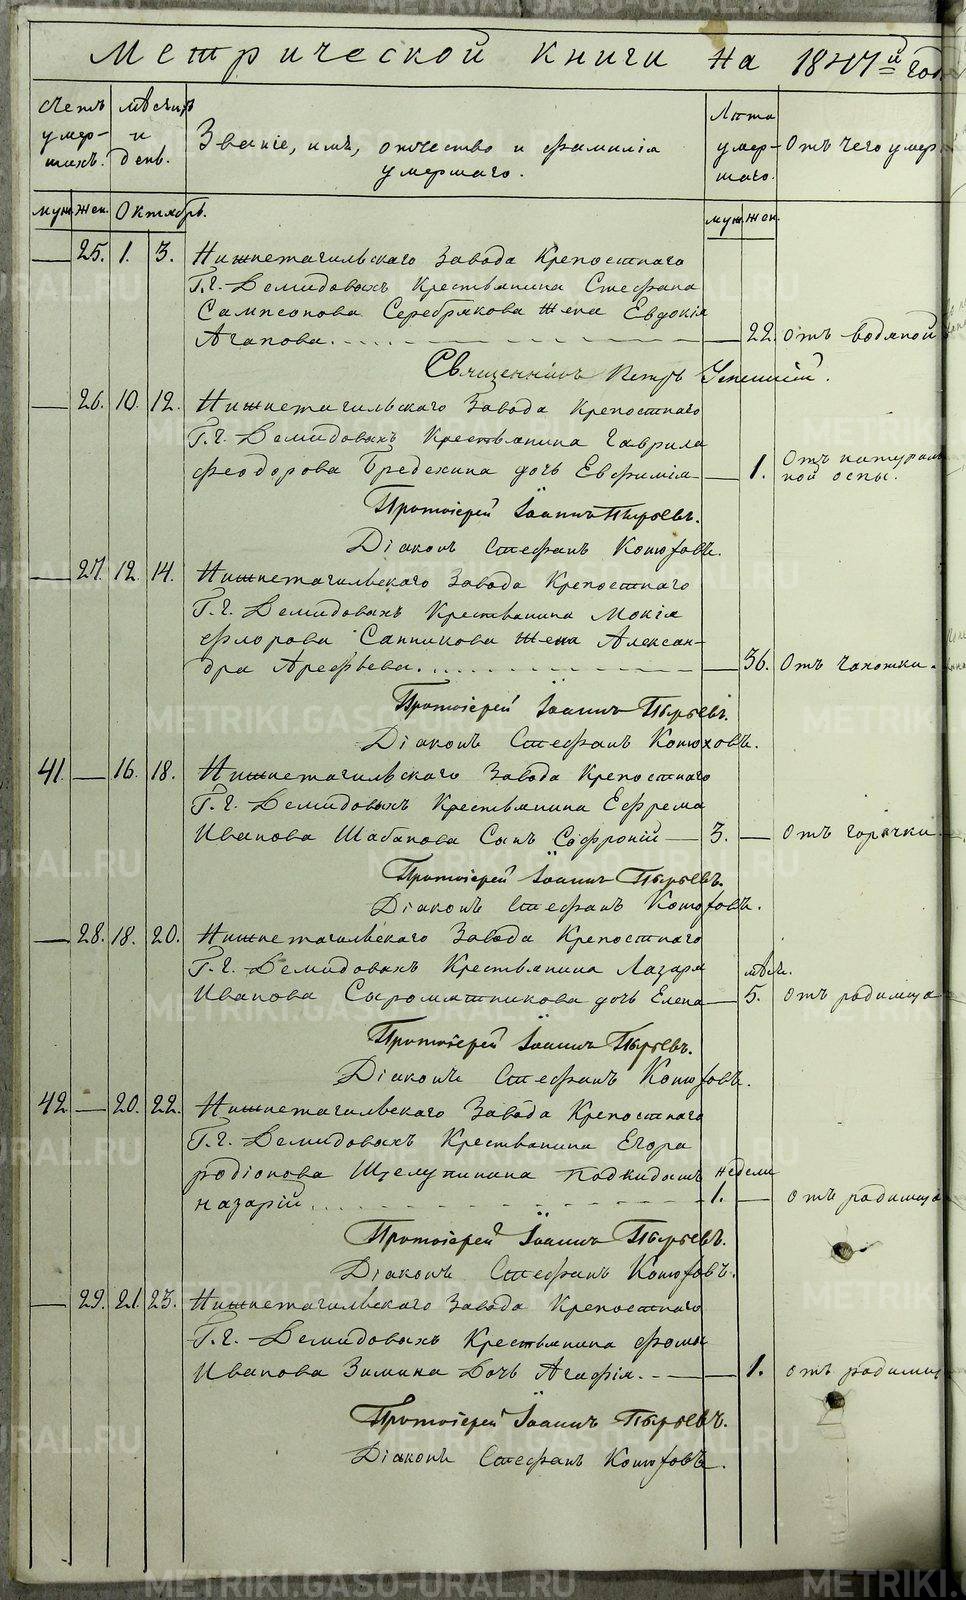 Метрической книги на 1847й год
Счетъ умер-шихъ. Мѣсяцъ и день. Званіе, имя, отчество и фамилія умершаго. Лѣта умер-шаго. Отъ чего умер
муж. жен. Октябрь. муж. жен.
— 25. 1. 3. Нижнетагильскаго Завода Крепостнаго
Г.г. Демидовыхъ Крестьянина Стефана
Сампсонова Серебрякова жена Евдокія
Агапова. — 22. Отъ водяной
Священникъ Петръ Успенскій.
— 26. 10. 12. Нижнетагильскаго Завода Крепостнаго
Г.г. Демидовыхъ Крестьянина Гаврила
Феодорова Бредехина дочь Евфимія — 1. Отъ натураль-
ной оспы.
Протоіерей Іоаннъ Пырьевъ.
Діаконъ Стефанъ Конюховъ.
— 27. 12. 14. Нижнетагильскаго Завода Крепостнаго
Г.г. Демидовыхъ Крестьянина Мокія
Флорова Санникова жена Алексан-
дра Арефьева. — 36. Отъ чахотки.
Протоіерей Іоаннъ Пырьевъ.
Діаконъ Стефанъ Конюховъ.
41. — 16. 18. Нижнетагильскаго Завода Крепостнаго
Г.г. Демидовыхъ Крестьянина Ефрема
Иванова Шабанова Сынъ Софроній — 3. — Отъ горячки
Протоіерей Іоаннъ Пырьевъ.
Діаконъ Стефанъ Конюховъ.
— 28. 18. 20. Нижнетагильскаго Завода Крепостнаго
Г.г. Демидовыхъ Крестьянина Лазаря мѣс.
Иванова Сыромятникова дочь Елена — 5. Отъ родимца
Протоіерей Іоаннъ Пырьевъ.
Діаконъ Стефанъ Конюховъ.
42 — 20. 22. Нижнетагильскаго Завода Крепостнаго
Г.г. Демидовыхъ Крестьянина Егора
родіонова Щелупинина подкидышъ недели
назарій. — 1. — отъ родимца
Протоіерей Іоаннъ Пырьевъ.
Діаконъ Стефанъ Конюховъ.
— 29. 21. 23. Нижнетагильскаго Завода Крепостнаго
Г.г. Демидовыхъ Крестьянина фомы
Иванова Зимина Дочь Агафія. — 1. отъ родимца
Протоіерей Іоаннъ Пырьевъ.
Діаконъ Стефанъ Конюховъ.
METRIKI.GASO-URAL.RU